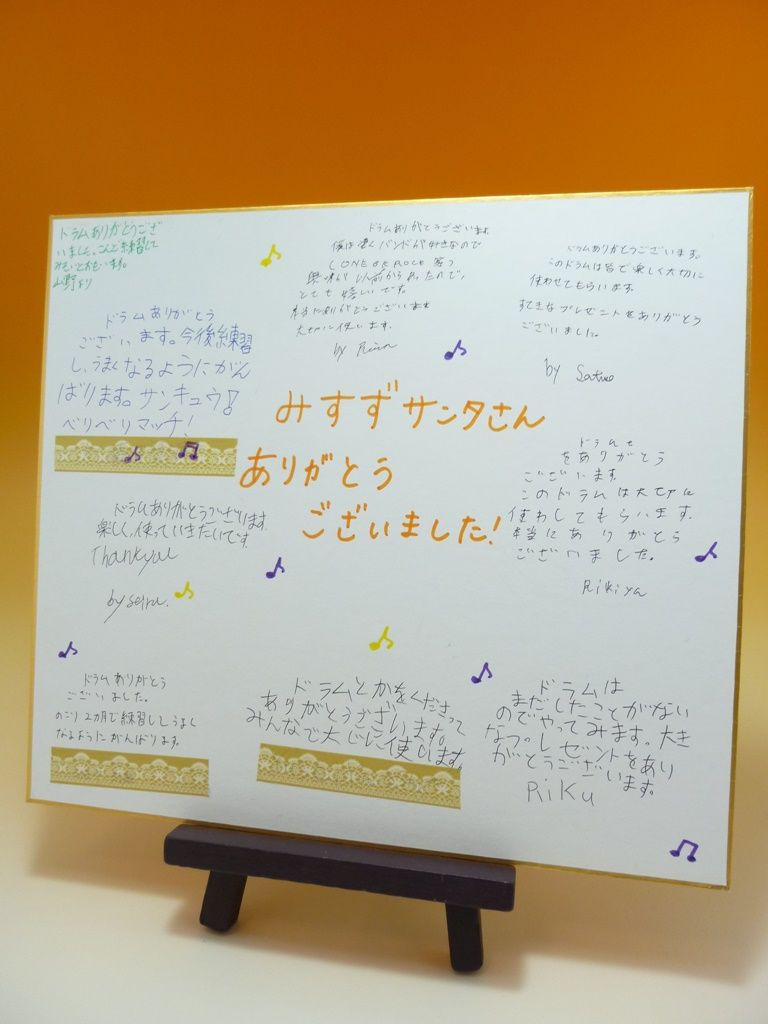 ドラムありがとうござ
いました。
山野より
ドラムありがとう
ございます。今後練習
し、うまくなるようにがん
ばります。サンキュウ!
ベリベリマッチ!
ドラムありがとうございます。
僕は凄くバンドが好きなので
ONE OK ROCK
興味が以前からあったので、
とても嬉しいです。
本当にありがとうございます
大切に使います。
by
ドラムありがとうございます。
このドラムは皆で楽しく大切に
使わせてもらいます。
すてきなプレゼントをありがとう
ございました。
by
みすずサンタさん
ありがとう
ございました!
ドラムを
をありがとう
ございます。
このドラムは大切に
使わしてもらいます。
本当にありがとう
ございました。
Rikiya
ドラムありがとうございます
楽しく使っていきたいです。
Thankyou
by seiru.
ドラムありがとう
ございました。
のこり2カ月で練習してうまく
なるようにがんばります。
ドラムとかをくださって
ありがとうございます。
みんなで大じに使います。
ドラムは
まだしたことがない
のでやってみます。大き
なプレゼントをあり
がとうございます。
RiKu